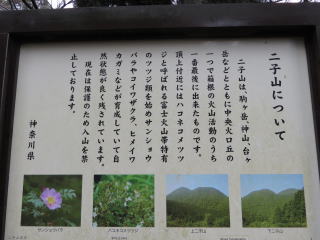 二子山について
二子山は、駒ヶ岳、神山、台ヶ
岳などとともに中央火口丘の
一つで箱根の火山活動のうち
一番最後に出来たものです。
頂上付近にはハコネコメツツ
ジと呼ばれる富士火山帯特有
のツツジ類を始めサンショウ
バラやコイワザクラ、ヒメイワ
カガミなどが育成していて自
然状態が良く残されています。
現在は保護のため入山を禁
止しております。
神奈川県
サンショウバラ
ハコネコメツツジ
上二子山
下二子山